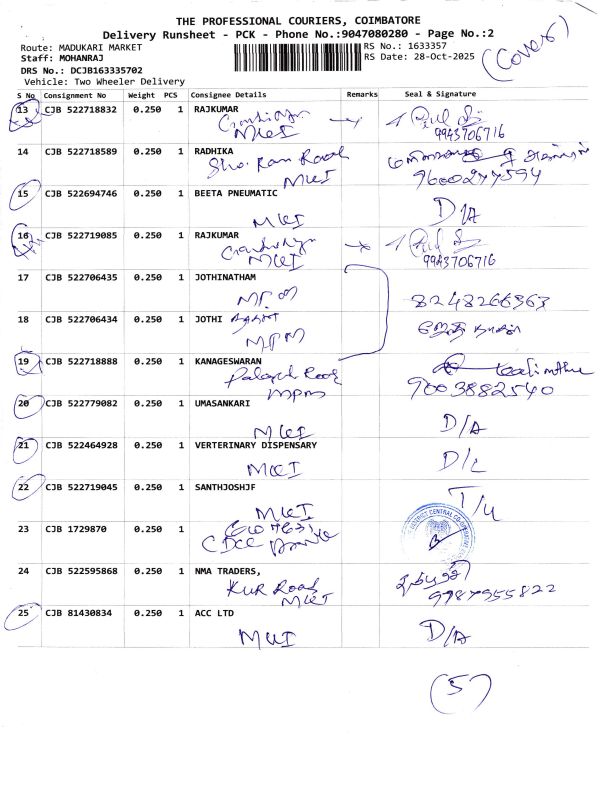 THE PROFESSIONAL COURIERS, COIMBATORE
Delivery Runsheet - PCK - Phone No.:9047080280 - Page No.:2
(Cover)
Route: MADUKARI MARKET
RS No.: 1633357
Staff: MOHANRAJ
RS Date: 28-Oct-2025
DRS No.: DCJB163335702
Vehicle: Two Wheeler Delivery
S No Consignment No Weight PCS Consignee Details Remarks Seal & Signature
13 CJB 522718832 0.250 1 RAJKUMAR
MKI
9943706716
14 CJB 522718589 0.250 1 RADHIKA
Road
MKI 9600277594
15 CJB 522694746 0.250 1 BEETA PNEUMATIC
MKI D/A
16 CJB 522719085 0.250 1 RAJKUMAR
MKI
9943706716
17 CJB 522706435 0.250 1 JOTHINATHAM
MPM 8248266363
18 CJB 522706434 0.250 1 JOTHI
MPM
19 CJB 522718888 0.250 1 KANAGESWARAN
Road
MPM 9003882540
20 CJB 522779082 0.250 1 UMASANKARI
MKI D/A
21 CJB 522464928 0.250 1 VERTERINARY DISPENSARY
MKI D/L
22 CJB 522719045 0.250 1 SANTHJOSHJF
MKI
23 CJB 1729870 0.250 1
24 CJB 522595868 0.250 1 NMA TRADERS,
KUR Road
MKI 9787955822
25 CJB 81430834 0.250 1 ACC LTD
MKI D/A
(5)